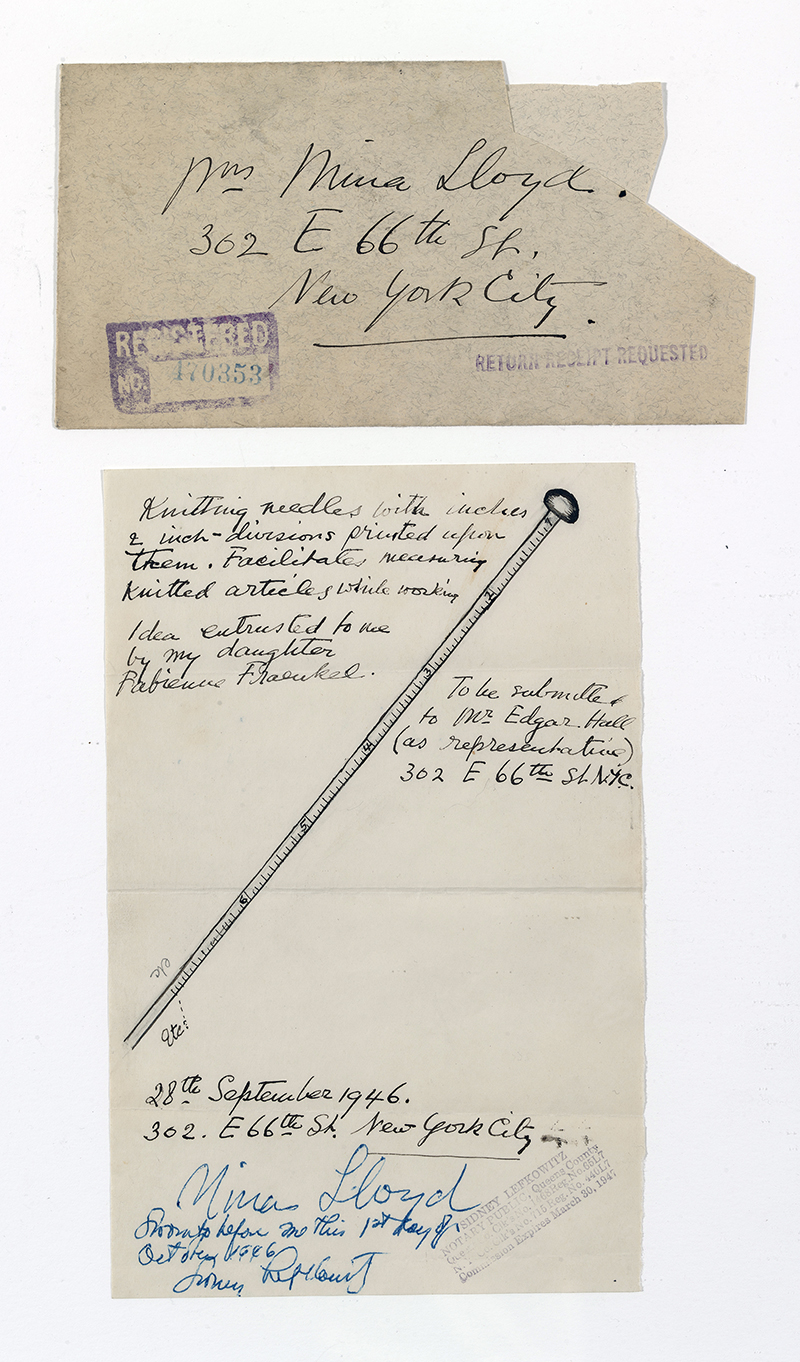 Mrs Mina Lloyd.
302 E 66th St.
New York City.
REGISTERED
NO. 170353
RETURN RECEIPT REQUESTED
Knitting needles with inches
& inch-divisions printed upon
them. Facilitates measuring
Knitted articles while working
Idea entrusted to me
by my daughter
Fabienne Fraenkel.
To be submitted
to Mr Edgar Hall
(as representative)
302 E 66th St. N.Y.C.
1
2
3
4
5
6
etc
Etc!!
28th September 1946.
302. E 66th St. New York City
Mina Lloyd
Sworn to before me this 1st day of
October 1946
Sidney Lefkowitz
SIDNEY LEFKOWITZ
NOTARY PUBLIC, Queens County
Commission Expires March 30, 1947